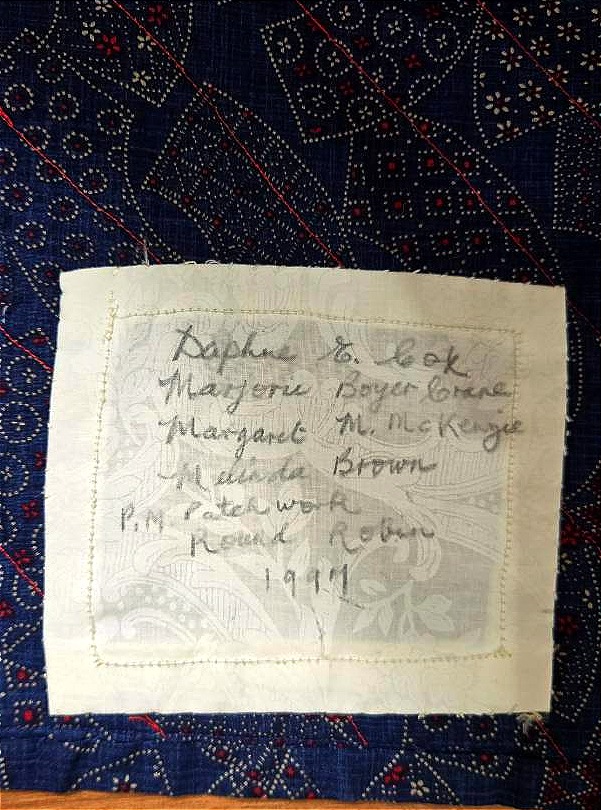 Daphne E. Cok
Marjorie Boyer Crane
Margaret M. McKenzie
Brown
P.M. Patchwork
Round Robin
1997